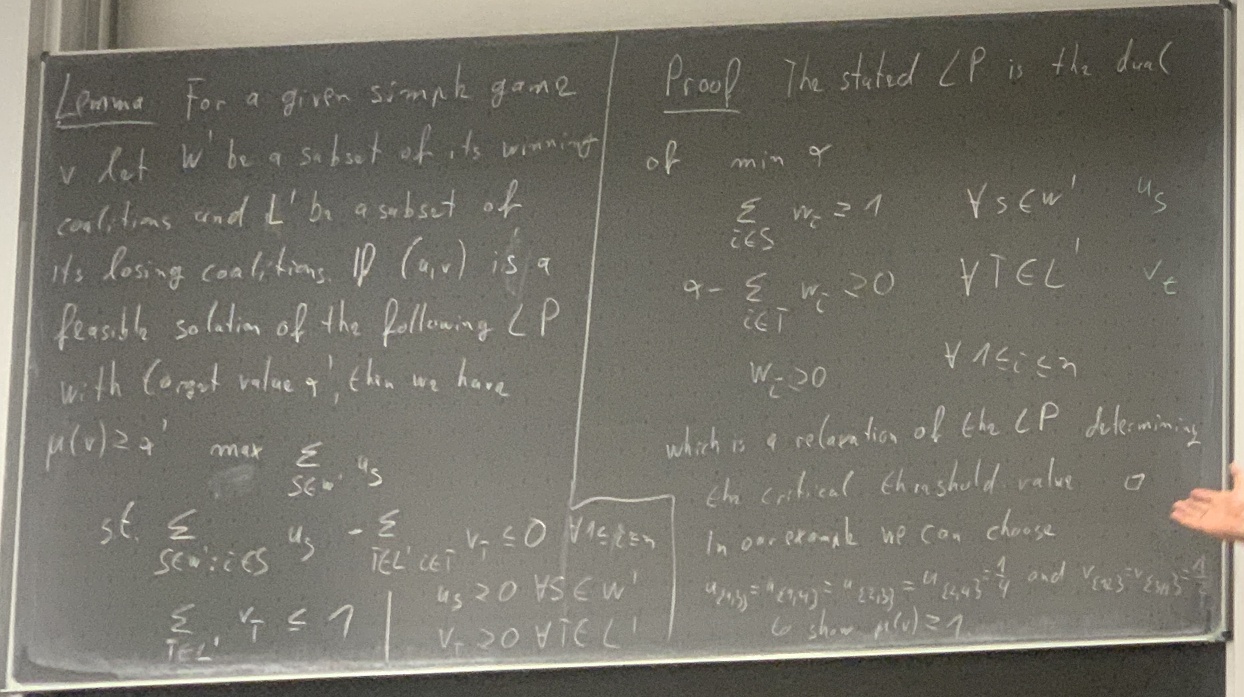 Lemma For a given simple game
v let W' be a subset of its winning
coalitions and L' be a subset of
its losing coalitions. If (u,v) is a
feasible solution of the following LP
with target value q', then we have
μ(v) ≥ q' max Σ_{S∈W'} u_S
st. Σ_{S∈W':i∈S} u_S - Σ_{T∈L' i∈T} v_T ≤ 0 ∀1≤i≤n
u_S ≥ 0 ∀S∈W'
Σ_{T∈L'} v_T ≤ 1
v_T ≥ 0 ∀T∈L'
Proof The stated LP is the dual
of min q
Σ_{i∈S} w_i ≥ 1 ∀S∈W' u_S
q - Σ_{i∈T} w_i ≥ 0 ∀T∈L' v_t
w_i ≥ 0 ∀1≤i≤n
which is a relaxation of the LP determining
the critical threshold value □
In our example we can choose
u_{{1,3}} = u_{{1,4}} = u_{{2,3}} = u_{{2,4}} = 1/4 and
to show μ(v) ≥ 1.